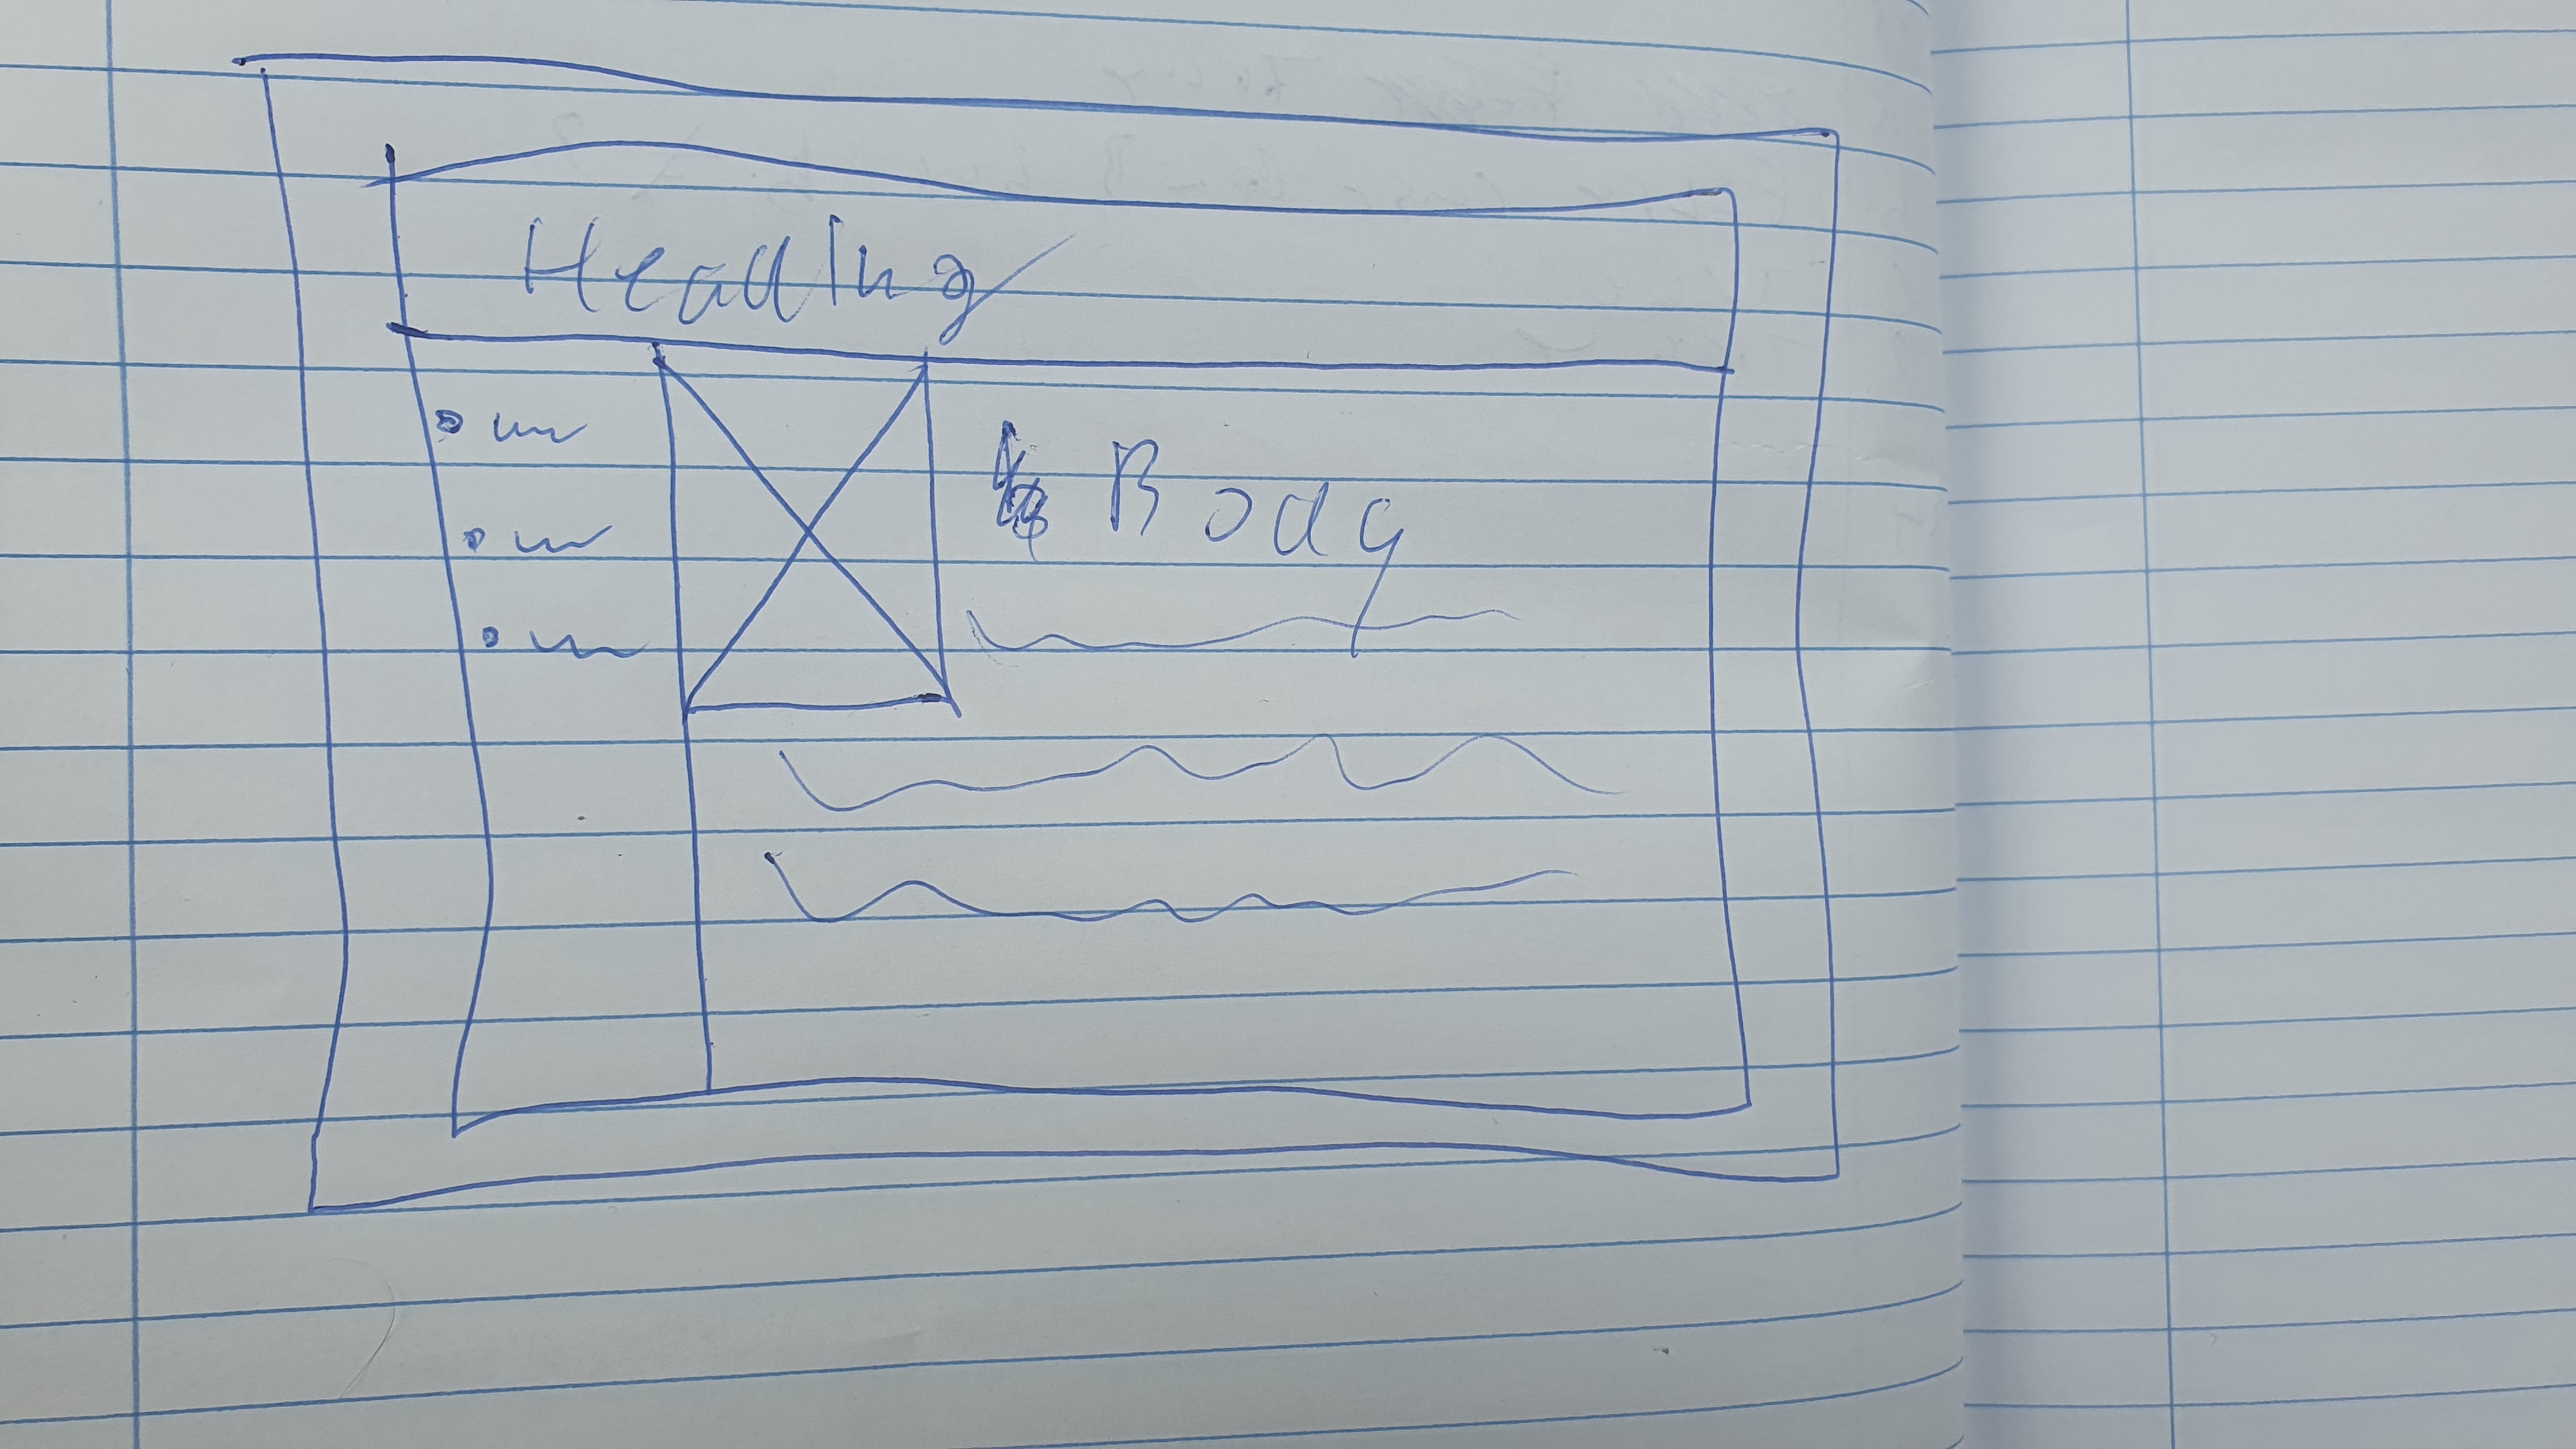 Heading
Body